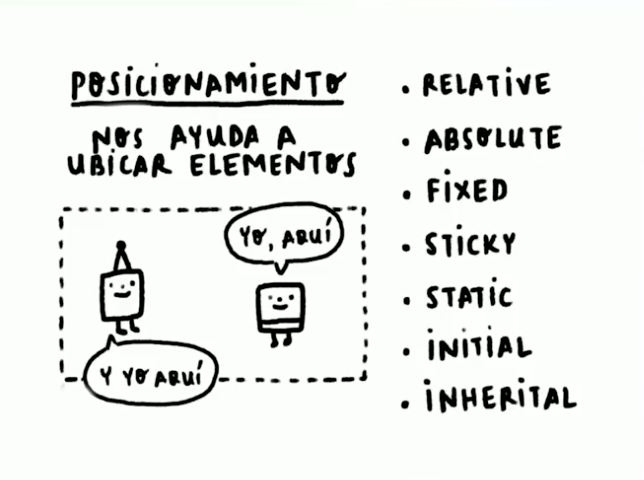 POSICIONAMIENTO
NOS AYUDA A
UBICAR ELEMENTOS
YO, AQUÍ
Y YO AQUÍ
• RELATIVE
• ABSOLUTE
• FIXED
• STICKY
• STATIC
• INITIAL
• INHERITAL